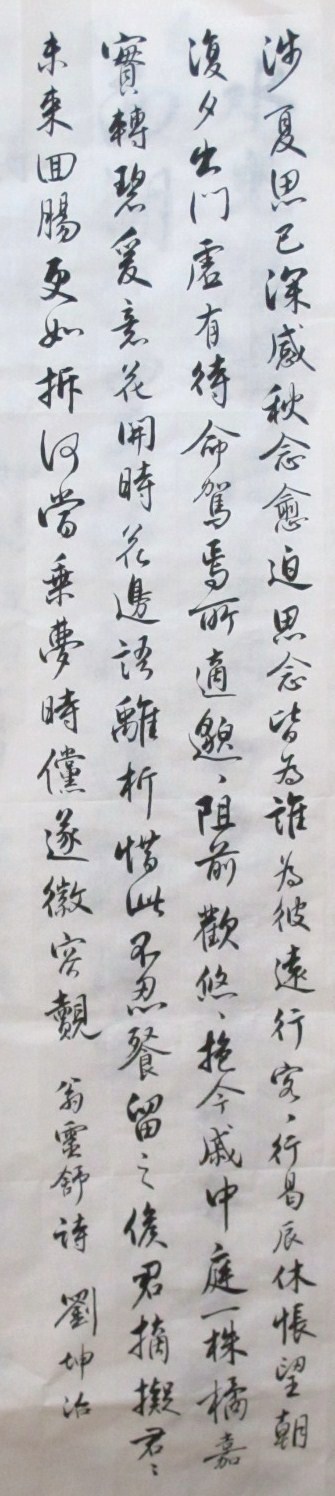 涉夏思已深感秋念愈迫思念皆為誰為彼遠行客、行曷辰休悵望朝
復夕出門虛有待命駕焉所適邈、阻前歡悠、抱今戚中庭一株橘嘉
實轉碧爰意花開時花邊語離析惜此不忍餐留之俟君摘擬君〻
未來回腸更如拆何當乘夢時儻遂徽容覿 翁靈舒詩 劉坤治